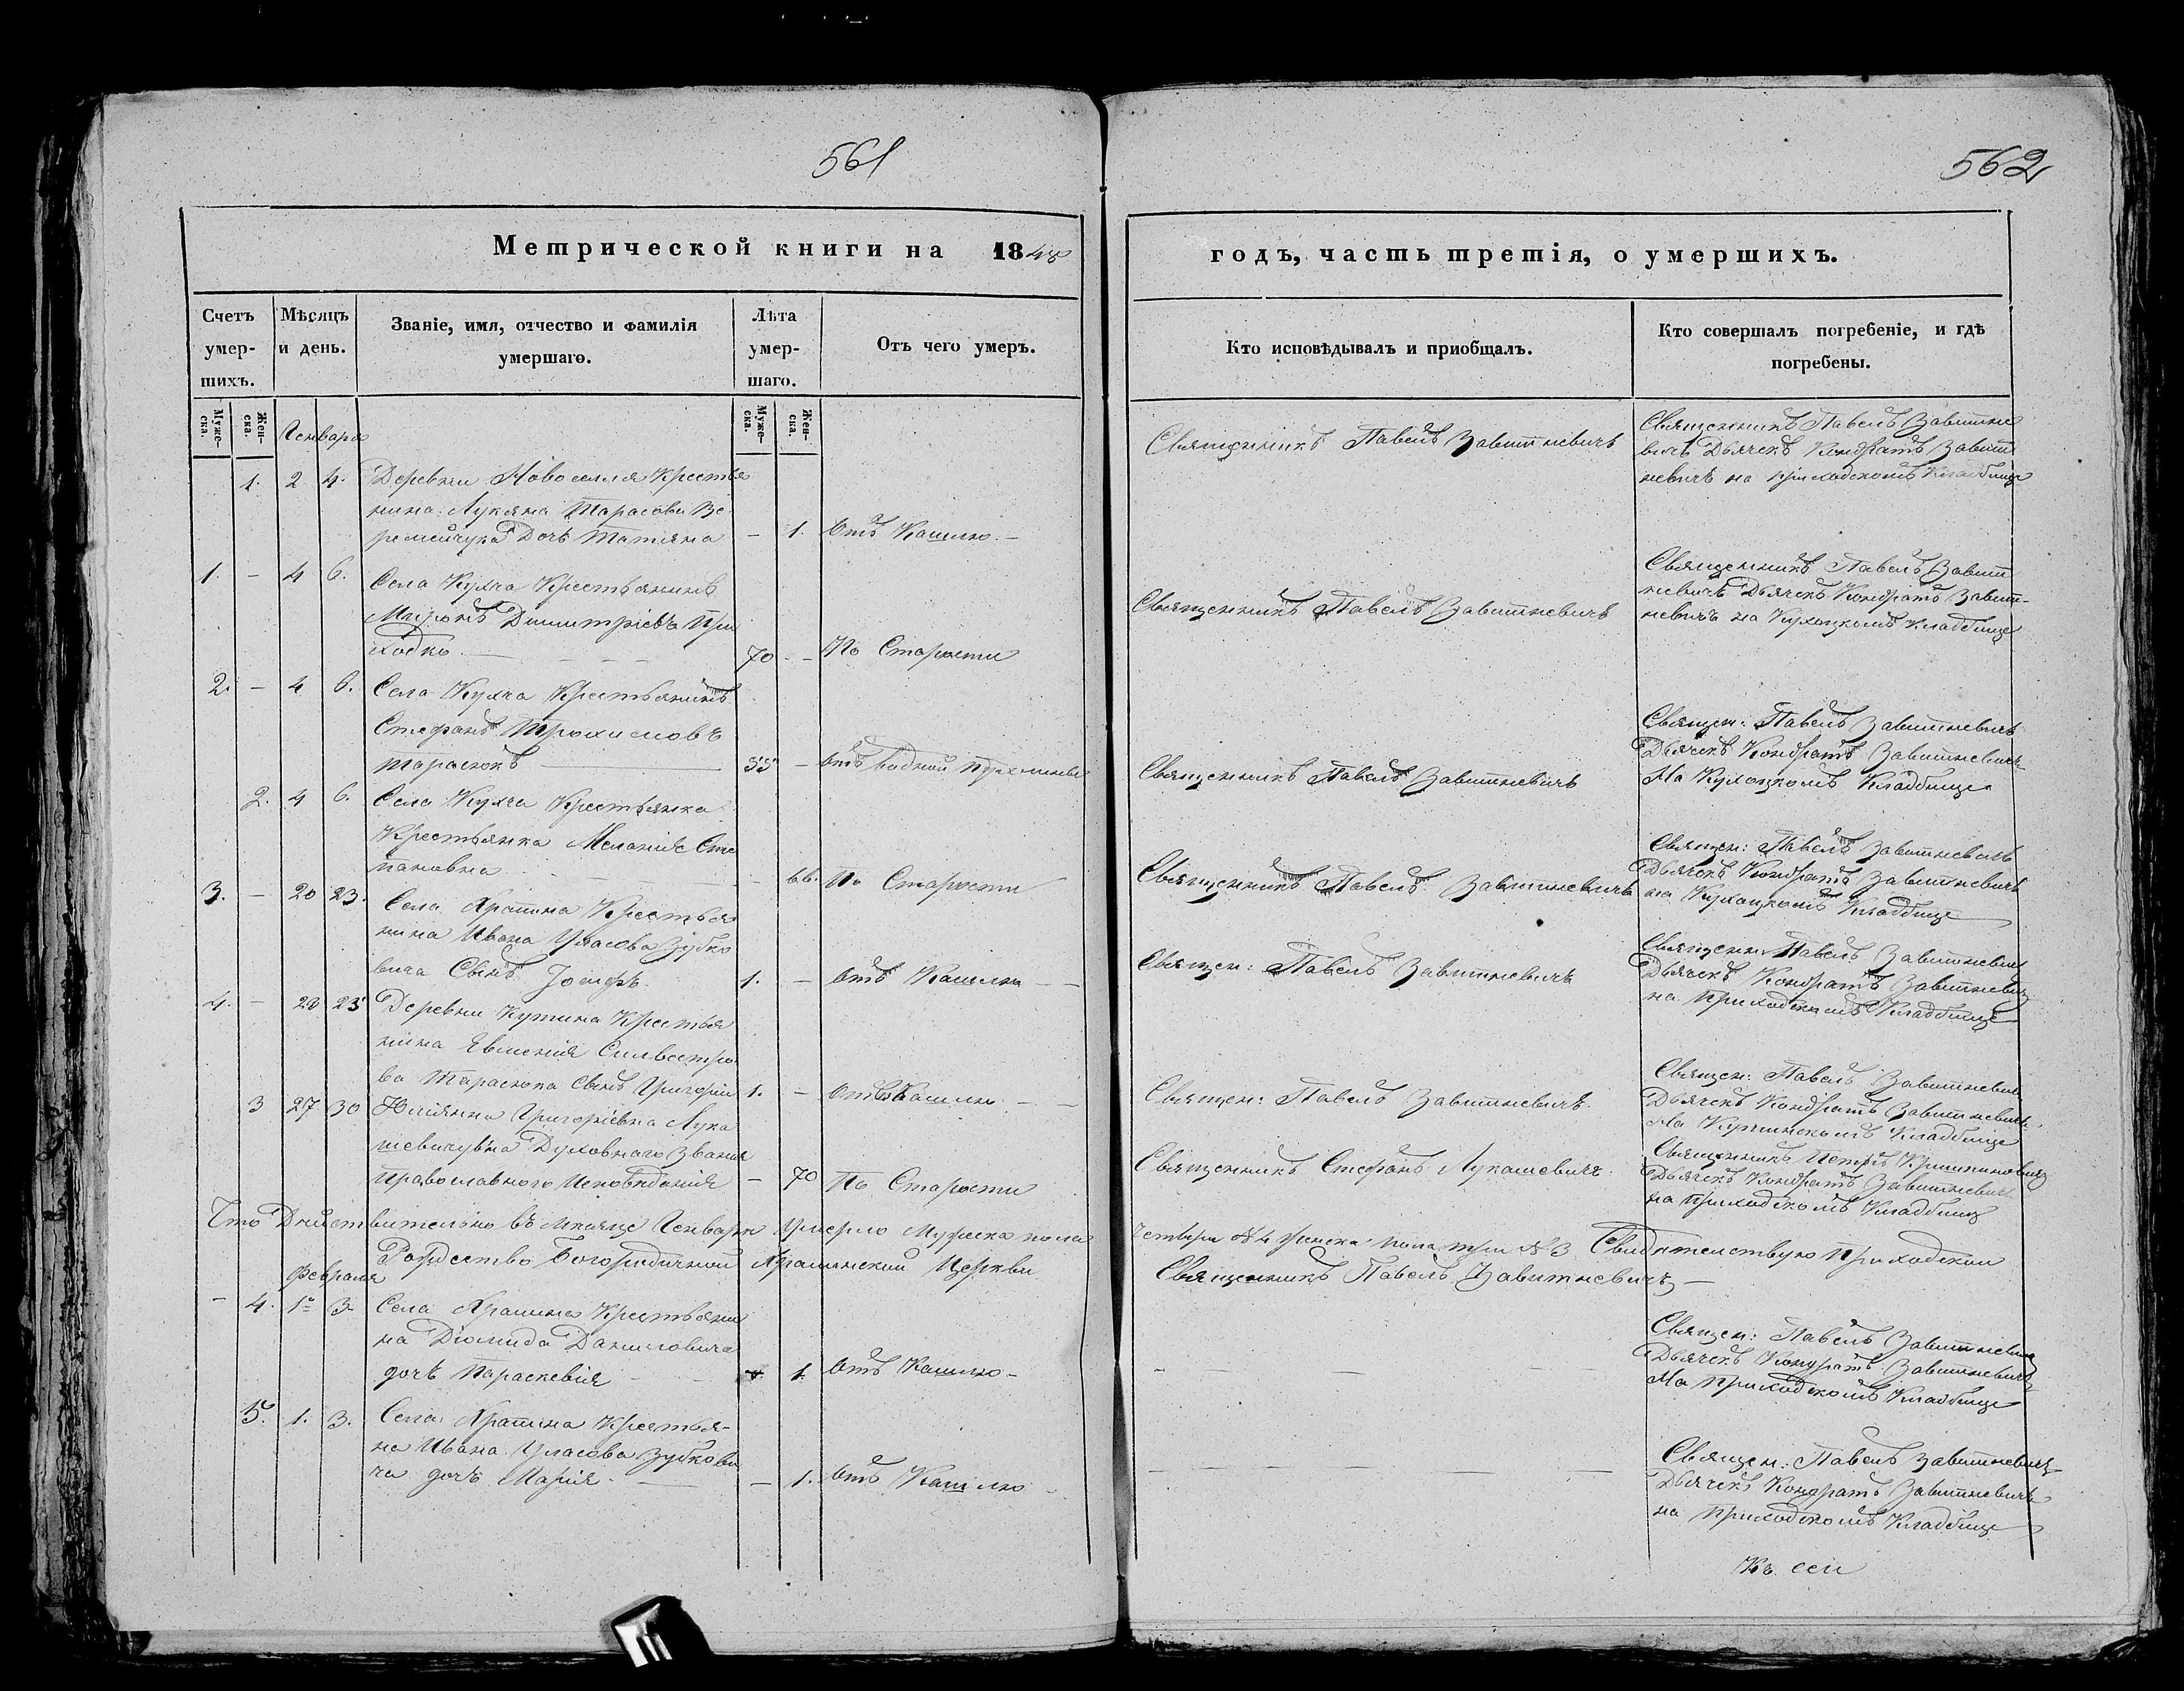 561
562
Метрической книги на 1848
годъ, часть третія, о умершихъ.
Счетъ умер-шихъ.
Мѣсяцъ и день.
Званіе, имя, отчество и фамилія умершаго.
Лѣта умер-шаго.
Отъ чего умеръ.
Кто исповѣдывалъ и приобщалъ.
Кто совершалъ погребеніе, и гдѣ погребены.
Муже-ска.
Жен-ска.
Муже-ска.
Жен-ска.
Генваря
1. 2 4. Деревни Новоселля Крестья
нина Лукяна Тарасова Ве
ремейчука Дочь Татіяна — 1. отъ Кашлю. —
Священникъ Павелъ Завитневичъ
Священникъ Павелъ Завитне
вичъ Дьячекъ Кондратъ Завит
невичъ на приходскомъ Кладбище
1. — 4 6. Села Кухча Крестьянинъ
Миронъ Димитріевъ При
ходко 70 — По Старости
Священникъ Павелъ Завитневичъ
Священникъ Павелъ Завит
невичъ Дьячекъ Кондратъ Завит-
невичъ на Кухоцкомъ Кладбище
2. — 4 6. Села Кухча Крестьянинъ
Стефанъ Трохимовъ
Тарасюкъ 55 — отъ водной пухлины
Священникъ Павелъ Завитневичъ
Священ: Павелъ Завитневичъ
Дьячекъ Кондратъ Завитневичъ
На Кухоцкомъ Кладбище
2. 4 6. Села Кухча Крестьянка
Крестьянка Меланія Сте
пановна — 66. По Старости
Священникъ Павелъ Завитневичъ
Священ: Павелъ Завитневичъ
Дьячекъ Кондратъ Завитневичъ
на Кухоцкомъ Кладбище
3. — 20 23. Села Храпина Крестья
нина Ивана Уласова Зубко
вича Сынъ Іосифъ. 1. — отъ Кашлю — —
Священ: Павелъ Завитневичъ
Священ: Павелъ Завитневичъ
Дьячекъ Кондратъ Завитневичъ
на приходскомъ Кладбище
4. — 23 25 Деревни Кутина Крестья
нина Евменія Сильвестро
ва Тарасюка Сынъ Григорій 1. — отъ Кашлю — —
Священ: Павелъ Завитневичъ.
Священ: Павелъ Завитневичъ
Дьячекъ Кондратъ Завитневичъ
На Кутинскомъ Кладбище
3 27 30 Юліянна Григоріевна Лука
шевичувна Духовнаго Званія
Православнаго Исповѣданія — 70 По Старости
Священникъ Стефанъ Лукашевичъ.
Священникъ Петръ
Дьячекъ Кондратъ Завитневичъ
на приходскомъ Кладбище
Что Дѣйствительно въ мѣсяце Генваре Умерло Мужеска пола
четыри N 4 Женска пола три N 3 Свидѣтельствую Приходской
Рождество Богородичной Храпинской Церкви
Священникъ Павелъ Завитневичъ —
Февраля
— 4. 1. 3. Села Храпина Крестьяни
на Діомида Даниловича
дочь Параскевія — 1. отъ Кашлю —
Священ: Павелъ Завитневичъ
Дьячекъ Кондратъ Завитневичъ
На Приходскомъ Кладбище
5. 1. 3. Села Храпина Крестья-
на Ивана Уласова Зубкови
ча дочь Марія — 1. отъ Кашлю
Священ: Павелъ Завитневичъ
Дьячекъ Кондратъ Завитневичъ
на приходскомъ Кладбище
Къ сей